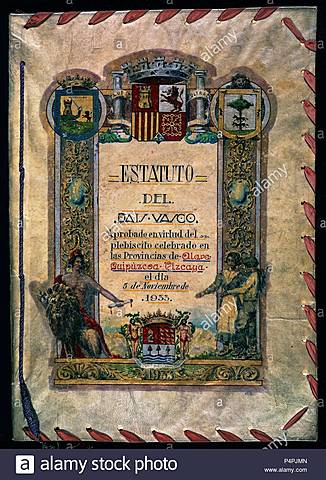 ESTATUTO
DEL
PAIS·VASCO.
Aprobado en virtud del
plebiscito celebrado en
las Provincias de Alava
Guipúzcoa Vizcaya
el día
5 de Noviembre de
1933.
1933
alamy
alamy stock photo
P4PJMN
www.alamy.com